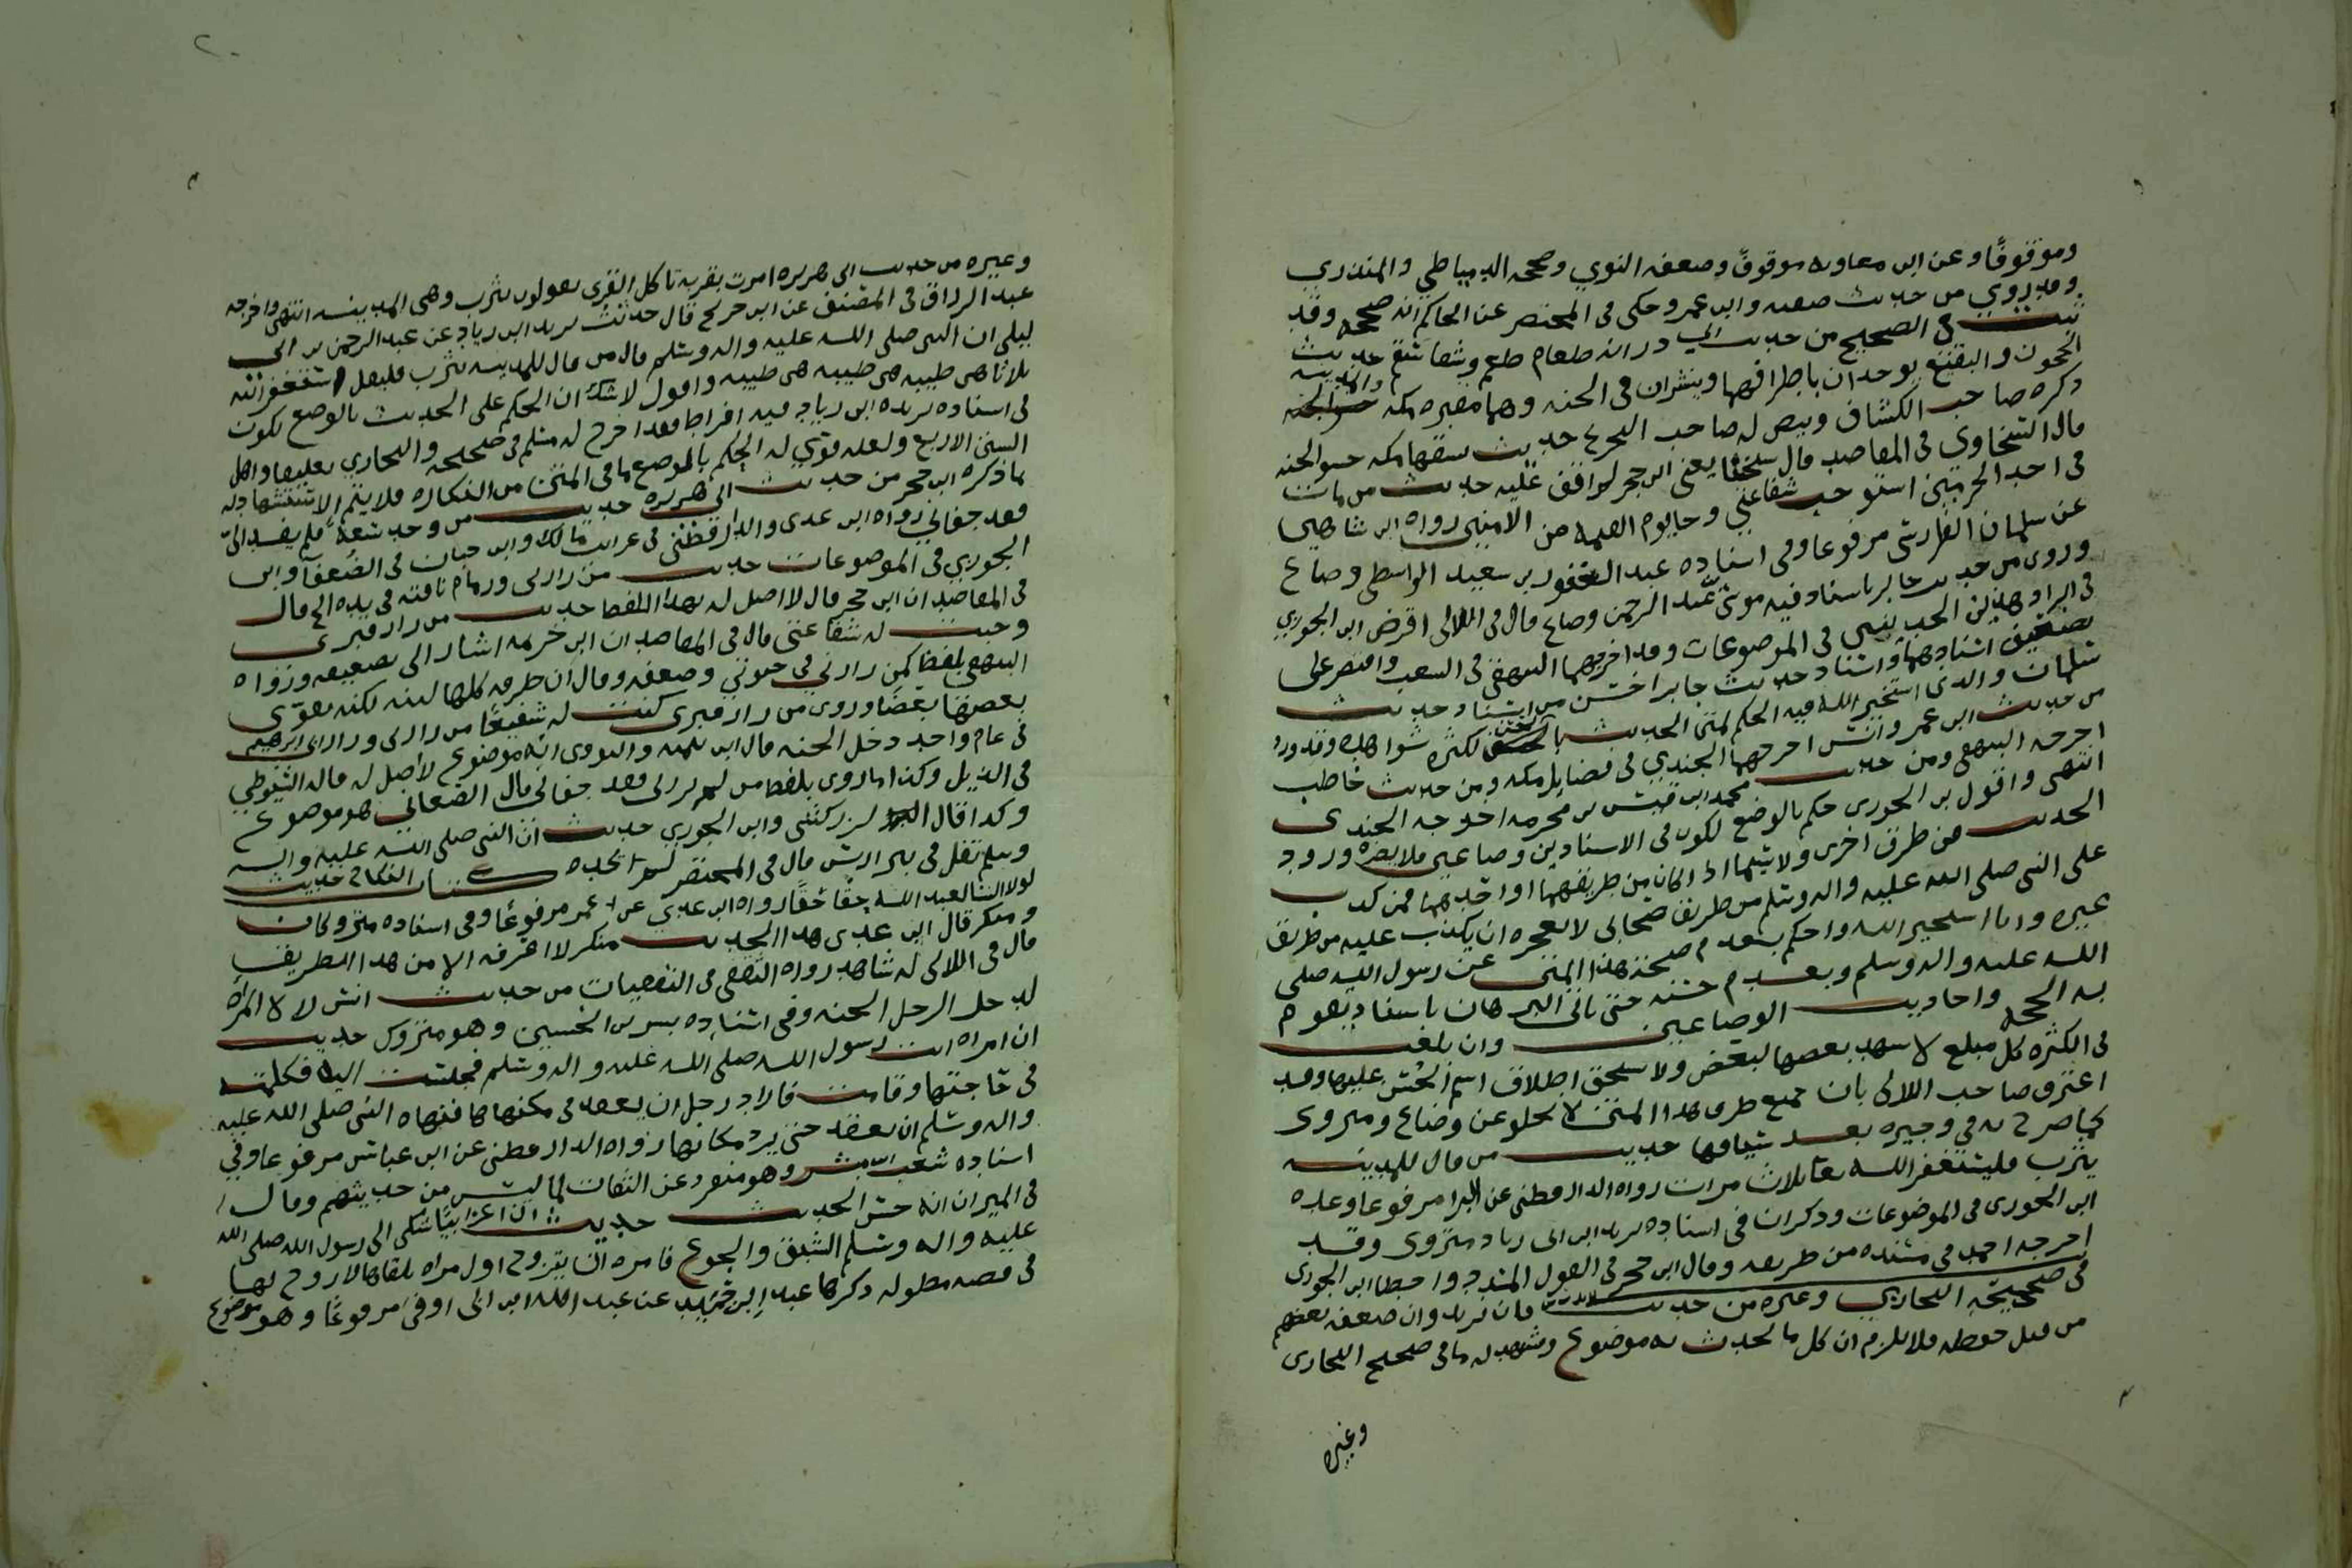 وموقوفًا وعن ابن معاويه موقوفً وضعفه النووي وصححه الدمياطي والمنذري
وقد روي من حديث صفيه وابن عمر وحكى في المختصر عن الحاكم انه صححه وقد
ثبت في الصحيح من حديث ابي ذر انه طعام طعم وشفا سقم حديث
الحجون والبقيع يوخذان باطرافهما وينثران في الجنه وهما مقبره مكه والمدينه
ذكره صاحب الكشاف وبيض له صاحب التخريج حديث سفها مكه حشو الجنه
قال السخاوي في المقاصد قال شيخنا يعني ابن حجر لم اقف عليه حديث من مات
في احد الحرمين استوجب شفاعتي وجا يوم القيمه من الامنين رواه ابن شاهين
عن سلمان الفارسي مرفوعا وفي اسناده عبد الغفور بن سعيد الواسطي وضاع
وروى من حديث جابر باسناد فيه موسى بن عبد الرحمن وضاع قال في اللالى افرط ابن الجوزي
في ايراد هذين الحديثين في الموضوعات وقد اخرجهما البيهقي في الشعب واقتصر على
تضعيف اسنادهما واسناد حديث جابر احسن من اسناد حديث
سلمان والذي استخير الله فيه الحكم لمتن الحديث بالحسن لكثره شواهده وقد ورد
من حديث ابن عمر وانس اخرجهما الجندي في فضايل مكه ومن حديث حاطب
اخرجه البيهقي ومن حديث محمد ابن قيس بن مخرمه اخرجه الجندي
انتهى واقول بن الجوزي حكم بالوضع لكون في الاسنادين وضاعين فلا يضره ورود
الحديث من طرق اخرى ولا سيما اذا كان من طريقهما او احدهما فمن كذب
على النبي صلى الله عليه واله وسلم من طريق صحابي لا يعجزه ان يكذب عليه من طريق
غيره وانا استخير الله واحكم بعدم صحة هذا المتن عن رسول الله صلى
الله عليه واله وسلم وبعدم حسنه حتى ياتي البرهان باسناد تقوم
به الحجه واحاديث الوضاعين وان بلغت
في الكثره كل مبلغ لا يشهد بعضها لبعض ولا يستحق اطلاق اسم الحسن عليها وقد
اعترف صاحب اللالى بان جميع طرق هذا المتن لا تخلو عن وضاع ومتروك
كما صرح به في وجيزه بعد سياقها حديث من قال للمدينه
يثرب فليستغفر الله تعا ثلاث مرات رواه الدارقطني عن البرا مرفوعا وعده
ابن الجوزي في الموضوعات وذكر ان في اسناده يزيد ابن ابي زياد متروك وقد
اخرجه احمد في مسنده من طريقه وقال ابن حجر في القول المسدد واخطا ابن الجوزي
فان يزيد وان ضعفه بعضهم
من قبل حفظه فلا يلزم ان كل ما يحدث به موضوع وشهد له ما في صحيح البخاري
وغيره
وغيره من حديث ابي هريره امرت بقريه تاكل القرى يقولون يثرب وهي المدينه انتهى واخرجه
عبد الرزاق في المصنف عن ابن جريج قال حدثت يزيد ابن زياد عن عبد الرحمن بن ابي
ليلى ان النبي صلى الله عليه واله وسلم قال من قال للمدينه يثرب فليقل استغفر الله
ثلاثا هي طيبه هي طيبه هي طيبه واقول لا شك ان الحكم على الحديث بالوضع لكون
في اسناده يزيده ابن زياد فيه افراط فقد اخرج له مسلم في صحيحه والبخاري تعليقا واهل
السنن الاربع ولعله قوي له الحكم بالوضع ما في المتن من النكاره فلا يتم الاستشهاد له
بما ذكره ابن حجر من حديث ابي هريره حديث من وجد سعة فلم يفد اليّ
فقد جفاني رواه ابن عدي والدارقطني في غرايب مالك وابن حبان في الضعفا وابن
الجوزي في الموضوعات حديث من زارني وزمام ناقته في يده الخ قال
في المقاصد ان ابن حجر قال لا اصل له بهذا اللفظ حديث من زار قبري
وجبت له شفاعتي قال في المقاصد ان ابن خزيمه اشار الى تضعيفه ورواه
البيهقي بلفظ كمن زارني في حيوتي وضعفه وقال ان طرقه كلها لينه لكنه يقوى
بعضها بعضا وروى من زار قبري كنت له شفيعًا من زارني وزار ابي ابرهيم
في عام واحد دخل الجنه قال ابن تيميه والنووي انه موضوع لا اصل له قاله السيوطي
في الذيل وكذا ما روي بلفظ من لم يزرني فقد جفاني قال الصغاني هو موضوع
وكذا قال الزركشي وابن الجوزي حديث ان النبي صلى الله عليه واله
وسلم تفل في بير اريس قال في المختصر لم اجده كتاب النكاح حديث
لولا النسا لعبد الله حقًا حقًا رواه ابن عدي عن عمر مرفوعًا وفي اسناده متروكان
ومنكر قال ابن عدي هذا الحديث منكر لا اعرفه الا من هذا الطريق
قال في اللالى له شاهد رواه الثقفي في الثقفيات من حديث انس لولا المراة
لدخل الرجل الجنه وفي اسناده بسر بن الحسين وهو متروك حديث
ان امراه اتت رسول الله صلى الله عليه واله وسلم فجلست اليه فكلمته
في حاجتها وقامت فاراد رجل ان يقعد في مكانها فنهاه النبي صلى الله عليه
واله وسلم ان يقعد حتى يبرد مكانها رواه الدارقطني عن ابن عباس مرفوعا وفي
اسناده شعيب ابن مبشر وهو منفرد عن الثقات لما ليس من حديثهم وقال
في الميزان انه حسن الحديث حديث ان اعرابيًا شكى الى رسول الله صلى الله
عليه واله وسلم الشبق والجوع فامره ان يتزوج اول امراه يلقاها لا زوج لها
في قصه مطوله ذكرها عبد ابن حميد عن عبد الله ابن ابي اوفى مرفوعًا وهو موضوع